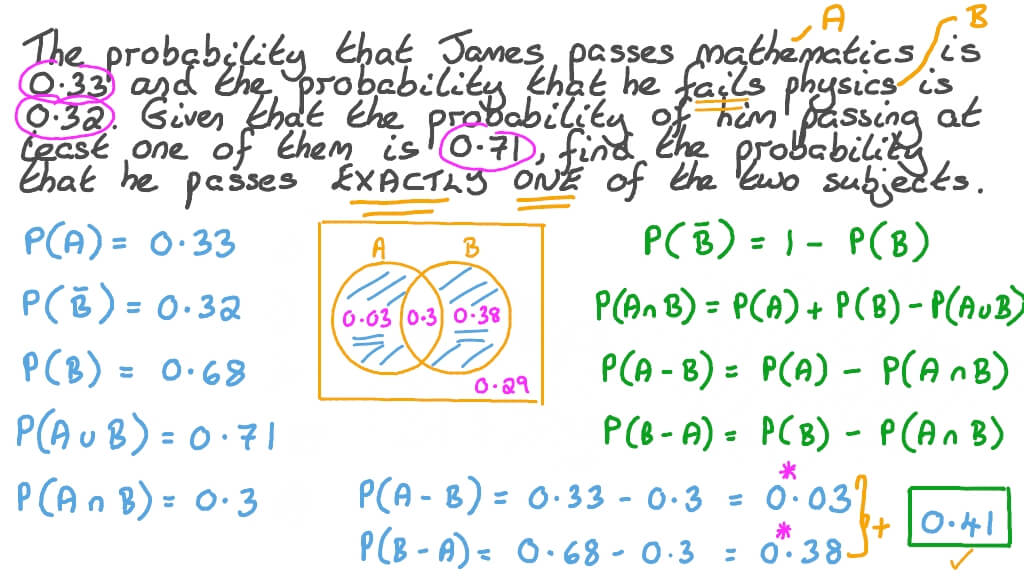 A
B
The probability that James passes mathematics is
0.33 and the probability that he fails physics is
0.32. Given that the probability of him passing at
least one of them is 0.71, find the probability
that he passes EXACTLY ONE of the two subjects.
P(A) = 0.33
P(B̄) = 0.32
P(B) = 0.68
P(A∪B) = 0.71
P(A∩B) = 0.3
A B
0.03 0.3 0.38
0.29
P(B̄) = 1 - P(B)
P(A∩B) = P(A) + P(B) - P(A∪B)
P(A - B) = P(A) - P(A∩B)
P(B - A) = P(B) - P(A∩B)
*
P(A - B) = 0.33 - 0.3 = 0.03
*
P(B - A) = 0.68 - 0.3 = 0.38
+
0.41
✓